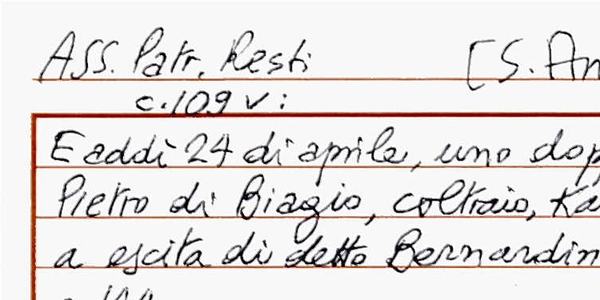 Ass. Patr. Resti [S. An
c. 109 v:
E addì 24 di aprile, uno dop
Pietro di Biagio, coltraio, Ka
a escita di detto Bernardin